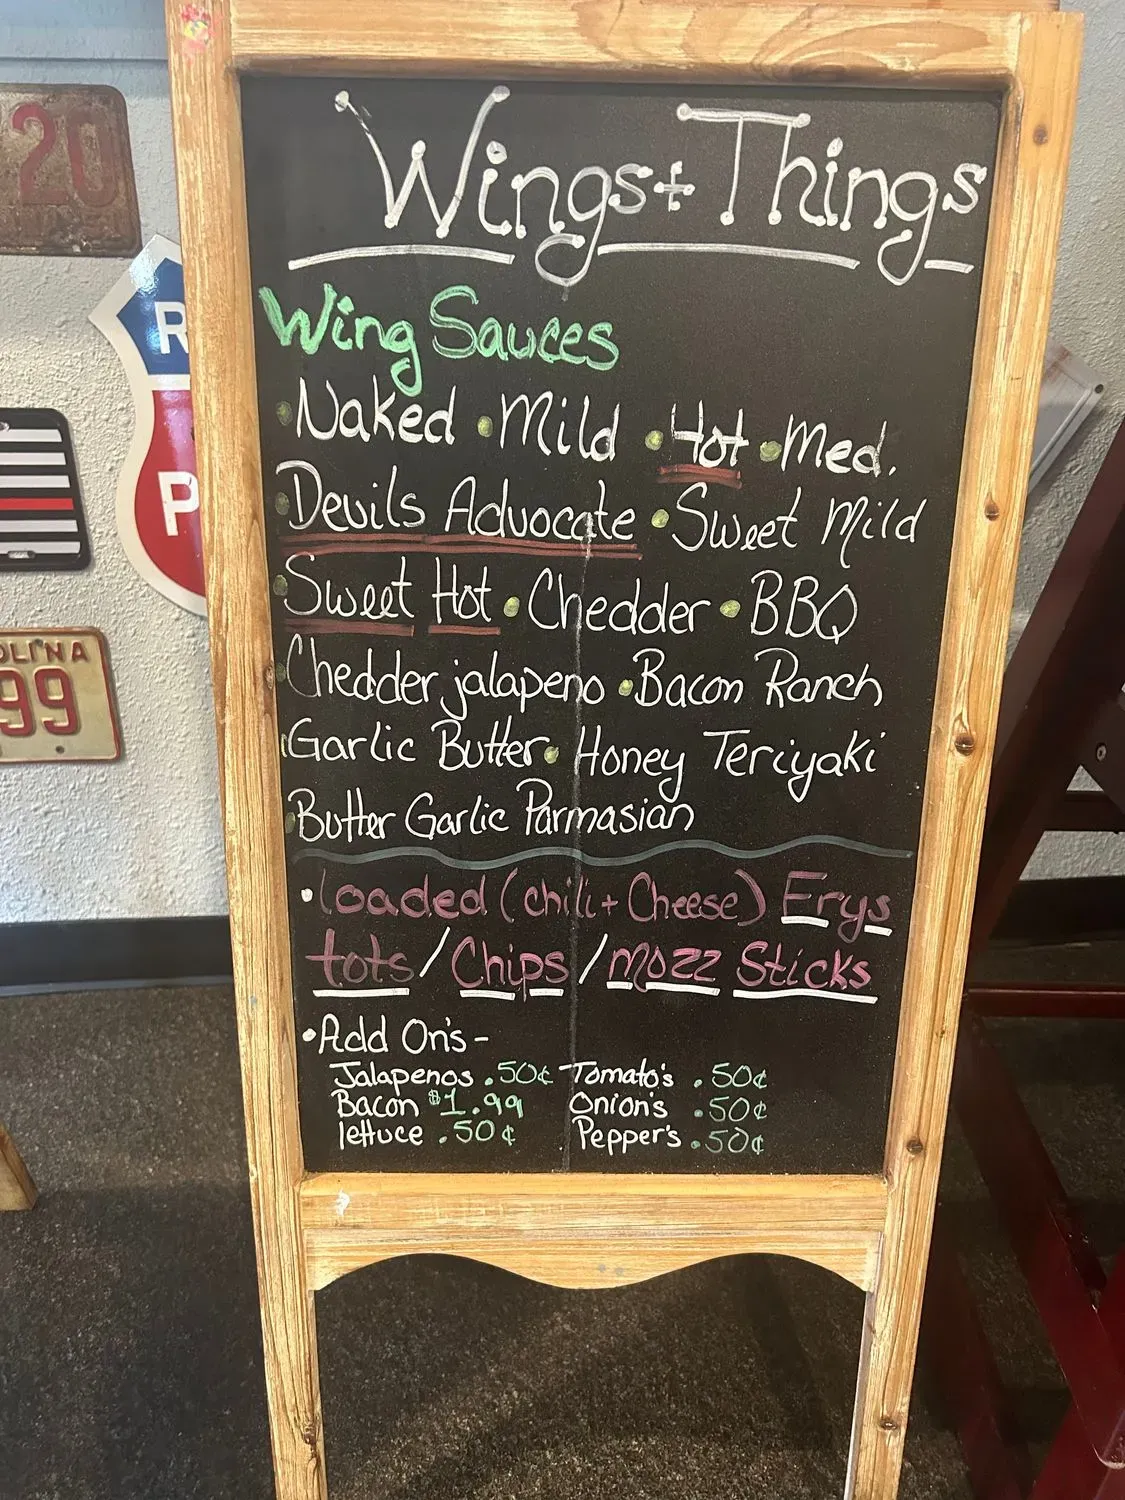 20
R
P
OLINA
99
Wings + Things
Wing Sauces
• Naked • Mild • Hot • Med.
• Devils Advocate • Sweet Mild
• Sweet Hot • Chedder • BBQ
• Chedder jalapeno • Bacon Ranch
• Garlic Butter • Honey Teriyaki
• Butter Garlic Parmasian
• loaded (chili + Cheese) Frys
tots / Chips / mozz Sticks
• Add On's -
Jalapenos .50¢ Tomato's .50¢
Bacon $1.99 Onion's .50¢
lettuce .50¢ Pepper's .50¢